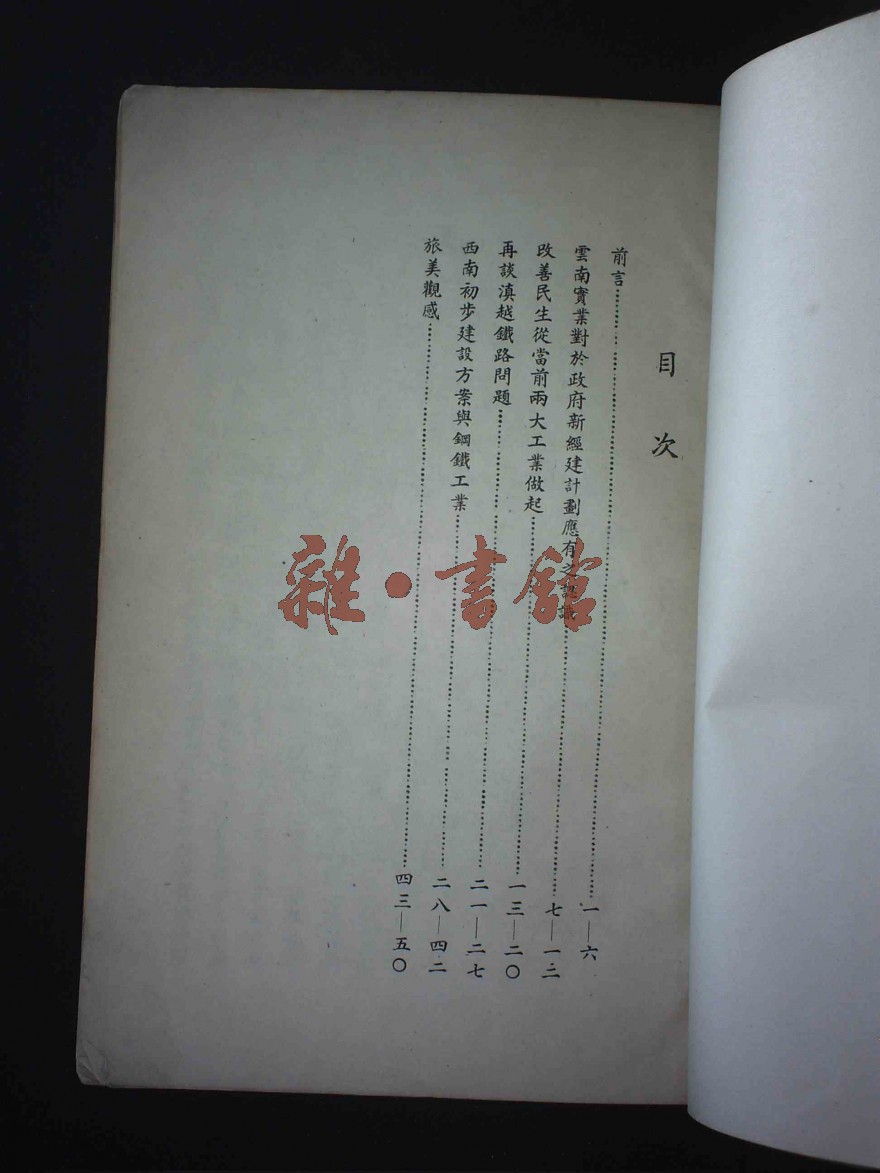 目次
前言……一—六
雲南實業對於政府新經建計劃應有之認識……七—一二
改善民生從當前兩大工業做起……一三—二〇
再談滇越鐵路問題……二一—二七
西南初步建設方案與鋼鐵工業……二八—四二
旅美觀感……四三—五〇
雜·書館